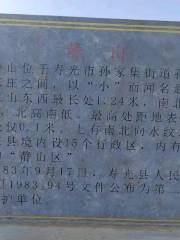 静山
山位于寿光市孙家集街道
庄之间，以“小”而闻名
山东西最长处1.24米，南北
，北高南低。最高处距地表
仅0.1米，上有南北向水纹
县境内设15个行政区，内有
“静山区”
83年9月17日，寿光县人民
1983)94号文件公布为第
护单位